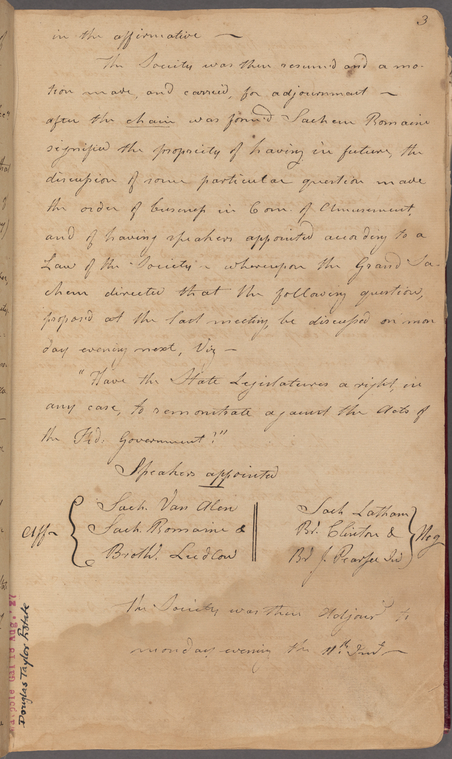 3
in the affirmative —
The Society was then resumed and a mo-
tion made, and carried, for adjournment —
after the chain was form'd Sachem Romaine
signified the propriety of having in future, the
discussion of some particular question made
the order of business in Com. of Amusement,
and of having speakers appointed according to a
Law of the Society – whereupon the Grand Sa-
chem directed that the following question,
proposed at the last meeting be discussed on mon
day evening next, Viz —
"Have the State Legislatures a right, in
any case, to remonstrate against the Acts of
the Fed: Government?"
Speakers appointed
Affr { Sach. Van Alen
Sach. Romaine &
Broth. Ludlow
Sach Latham
Br. Clinton &
Br J. Pearsee } Neg
The Society was then Adjour'd to
monday evening the 11th Inst —
Douglas Taylor